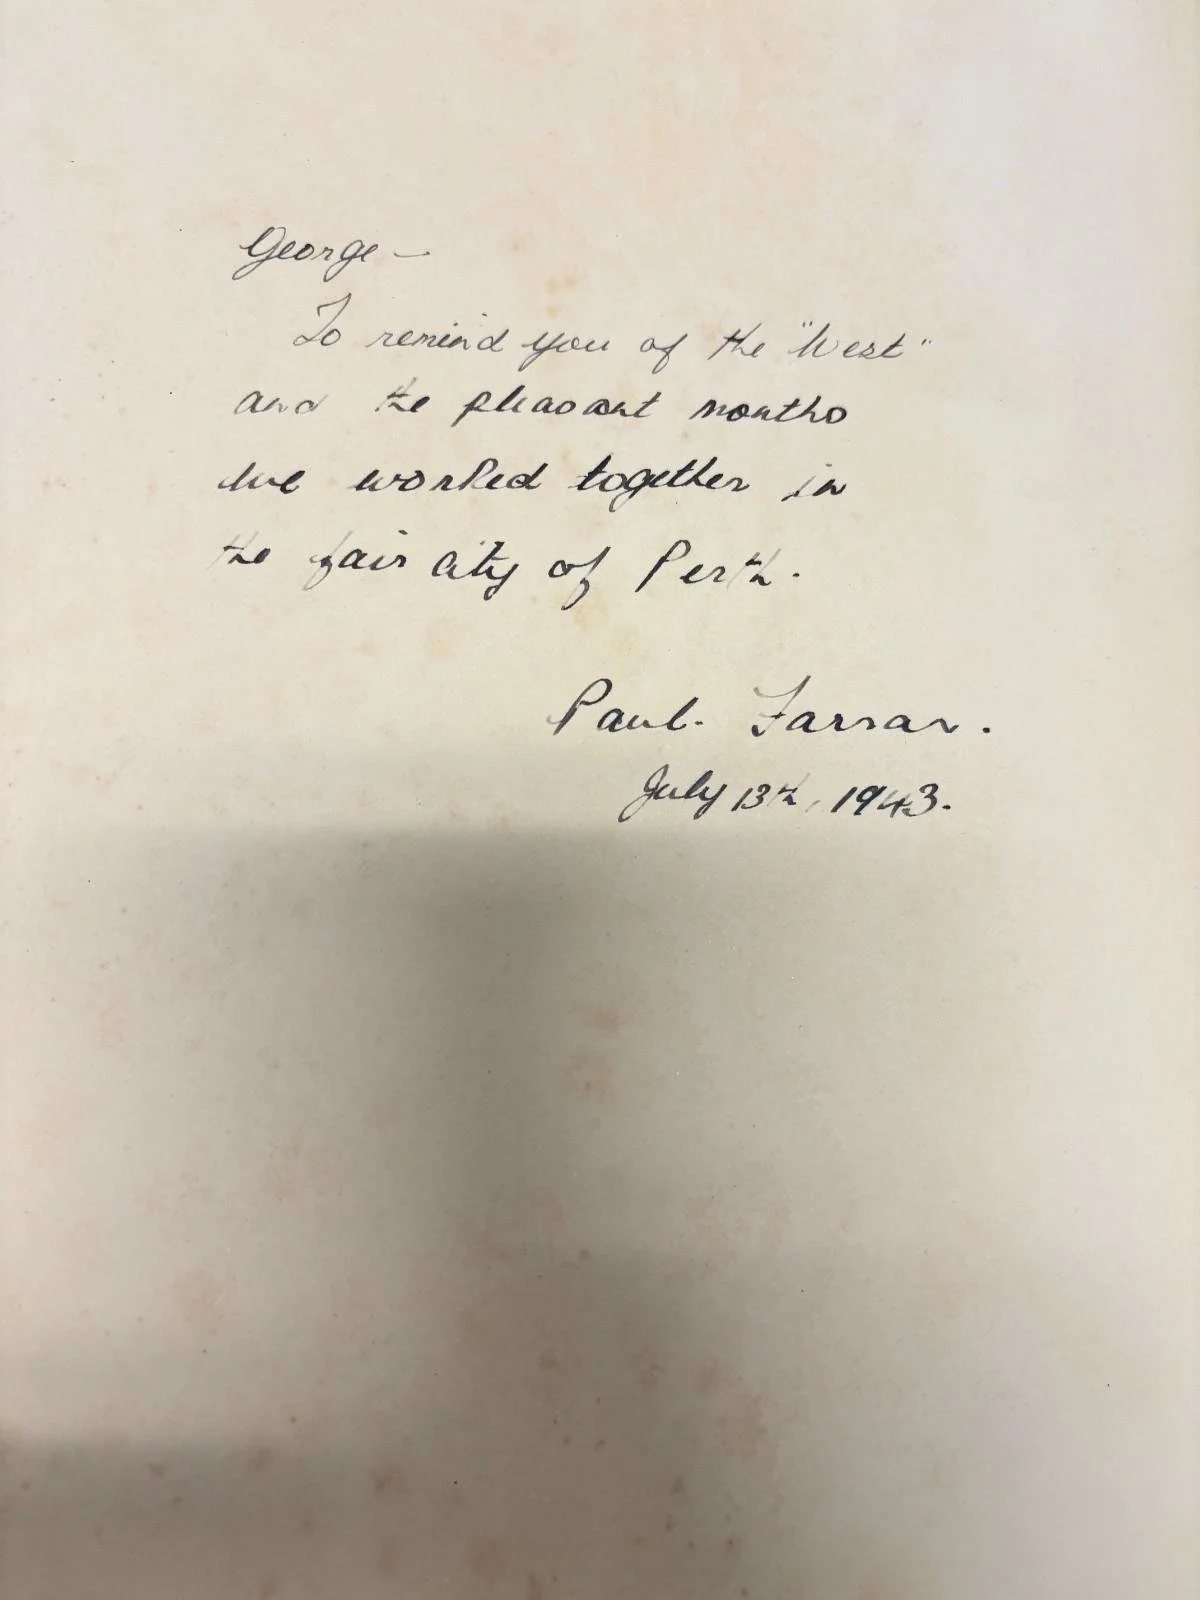 George —
To remind you of the "West"
and the pleasant months
we worked together in
the fair city of Perth.
Paul. Farrar.
July 13th, 1943.